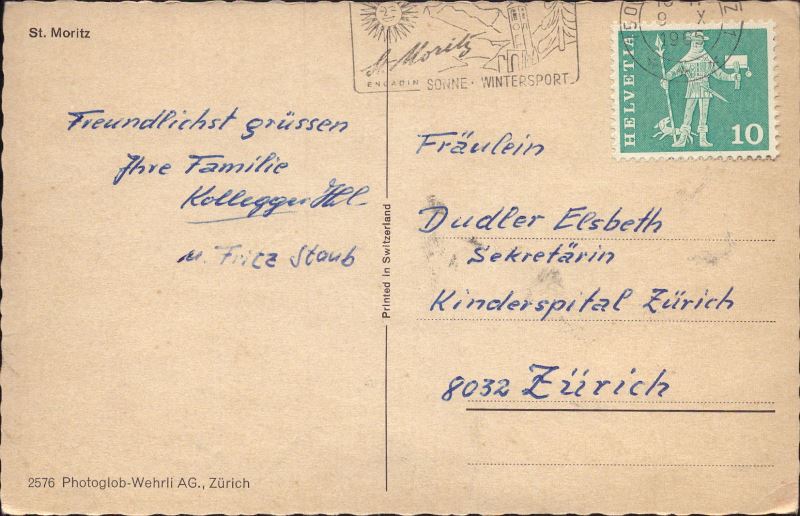 St. Moritz
Freundlichst grüssen
Ihre Familie
Kollegger
u. Fritz Staub
2576 Photoglob-Wehrli AG., Zürich
Printed in Switzerland
St. Moritz
ENGADIN SONNE · WINTERSPORT
HELVETIA
10
Fräulein
Dudler Elsbeth
Sekretärin
Kinderspital Zürich
8032 Zürich